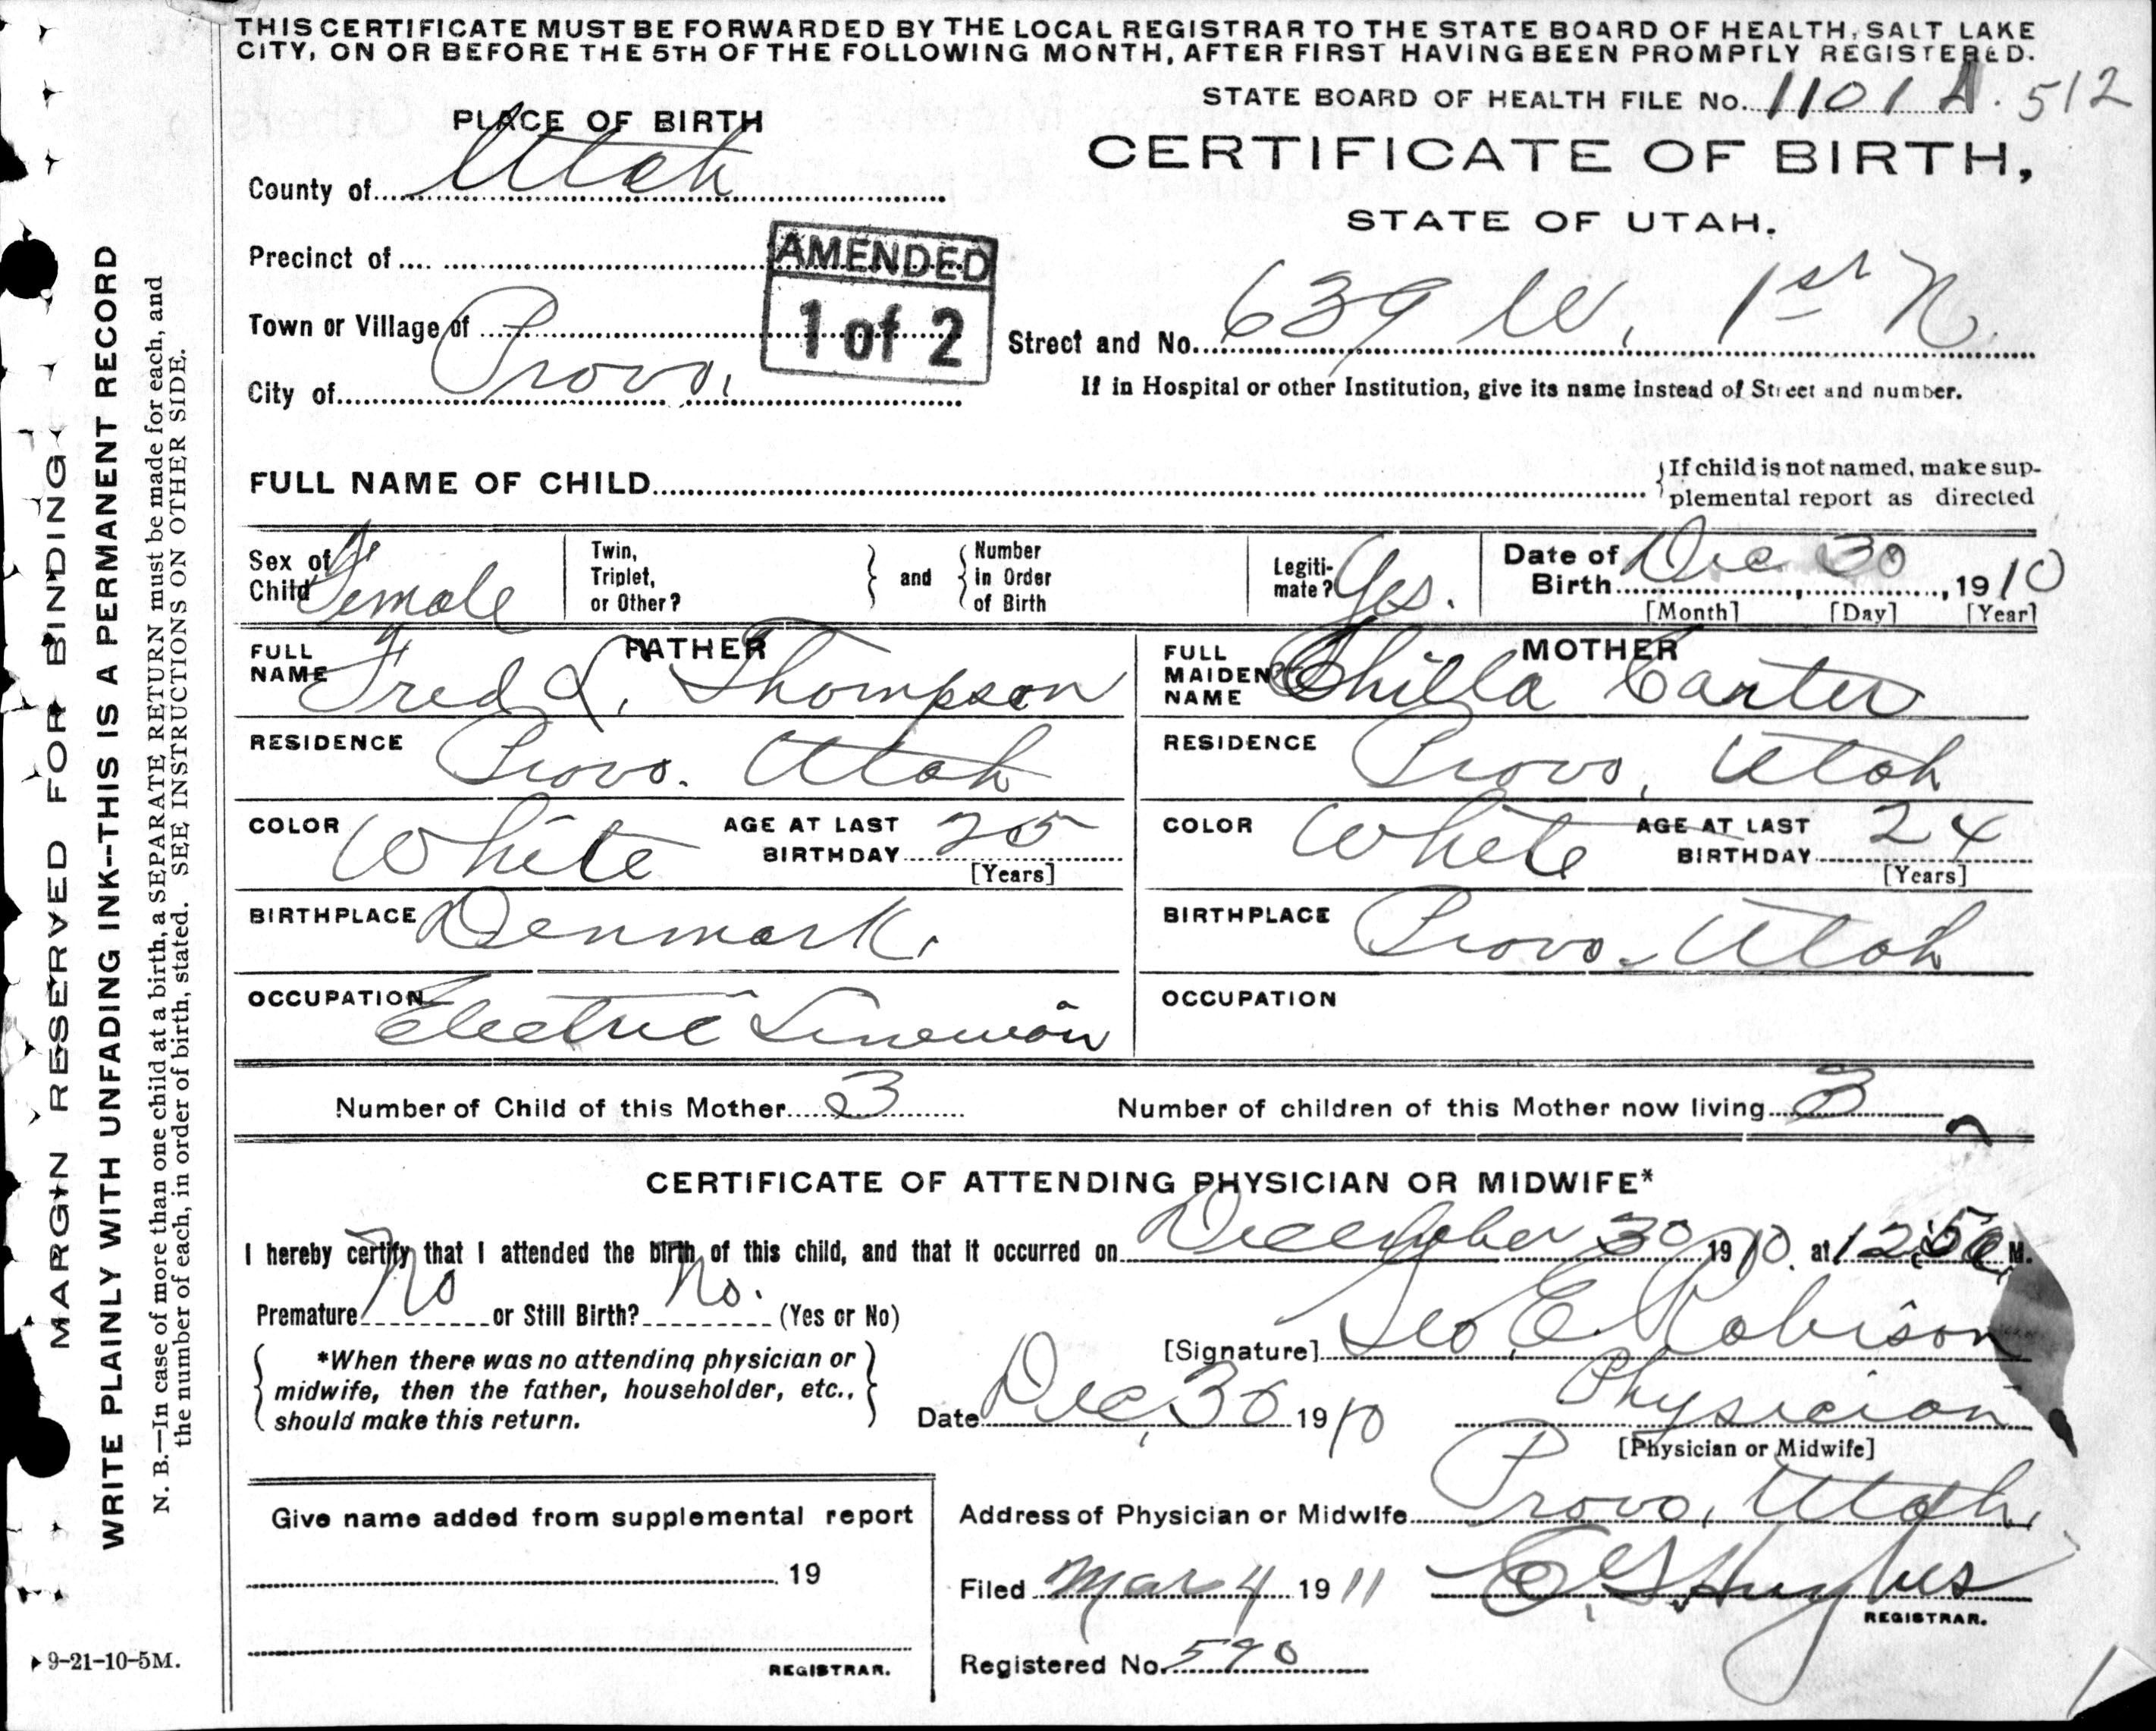 THIS CERTIFICATE MUST BE FORWARDED BY THE LOCAL REGISTRAR TO THE STATE BOARD OF HEALTH, SALT LAKE
CITY, ON OR BEFORE THE 5TH OF THE FOLLOWING MONTH, AFTER FIRST HAVING BEEN PROMPTLY REGISTERED.
STATE BOARD OF HEALTH FILE No. 1101 A. 512
PLACE OF BIRTH
CERTIFICATE OF BIRTH,
STATE OF UTAH.
County of Utah
Precinct of
AMENDED
1 of 2
Town or Village of
Street and No. 639 W. 1st N.
City of Provo.
If in Hospital or other Institution, give its name instead of Street and number.
FULL NAME OF CHILD
If child is not named, make sup-
plemental report as directed
Sex of Child Female
Twin, Triplet, or Other?
and
Number in Order of Birth
Legiti-mate? Yes.
Date of Birth Dec 30, 1910
[Month] [Day] [Year]
FATHER
FULL NAME Fred L. Thompson
RESIDENCE Provo. Utah
COLOR White AGE AT LAST BIRTHDAY 25
[Years]
BIRTHPLACE Denmark.
OCCUPATION Electric Lineman
MOTHER
FULL MAIDEN NAME Chilla Carter
RESIDENCE Provo, Utah
COLOR White AGE AT LAST BIRTHDAY 24
[Years]
BIRTHPLACE Provo. Utah
OCCUPATION
Number of Child of this Mother 3 Number of children of this Mother now living 3
CERTIFICATE OF ATTENDING PHYSICIAN OR MIDWIFE*
I hereby certify that I attended the birth of this child, and that it occurred on December 30 1910. at 12,50 M.
Premature No or Still Birth? No. (Yes or No)
*When there was no attending physician or
midwife, then the father, householder, etc.,
should make this return.
[Signature] Geo. E. Robison
Date Dec, 30 1910
Physician
[Physician or Midwife]
Give name added from supplemental report
19
REGISTRAR.
Address of Physician or Midwife Provo, Utah.
Filed Mar 4 1911 E. G. Hughes
REGISTRAR.
Registered No. 590
MARGIN RESERVED FOR BINDING
WRITE PLAINLY WITH UNFADING INK--THIS IS A PERMANENT RECORD
N. B.—In case of more than one child at a birth, a SEPARATE RETURN must be made for each, and
the number of each, in order of birth, stated. SEE INSTRUCTIONS ON OTHER SIDE.
9-21-10-5M.